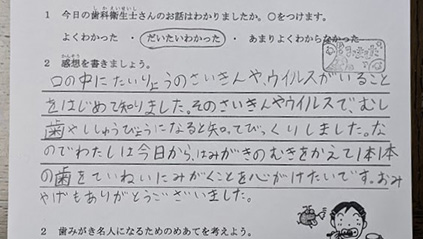 しかえいせいし
1 今日の歯科衛生士さんのお話はわかりましたか。〇をつけます。
よくわかった ・ だいたいわかった ・ あまりよくわからなかった
かんそう
2 感想を書きましょう。
口の中にたいりょうのさいきんや、ウイルスがいること
をはじめて知りました。そのさいきんやウイルスでむし
歯やししゅうびょうになると知ってびっくりしました。な
のでわたしは今日から、はみがきのむきをかえて1本1本
の歯をていねいにみがくことを心がけたいです。おみ
やげもありがとうございました。
2 歯みがき名人になるためのめあてを考えよう。